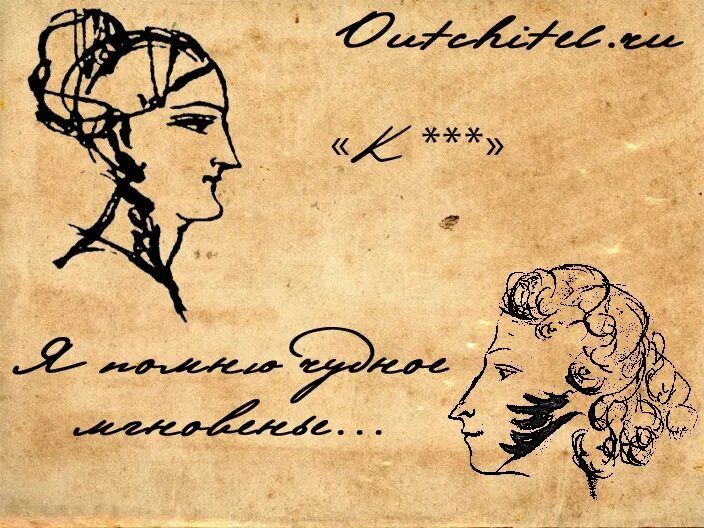 Outchitel.ru
«К ***»
Я помню чудное
мгновенье...